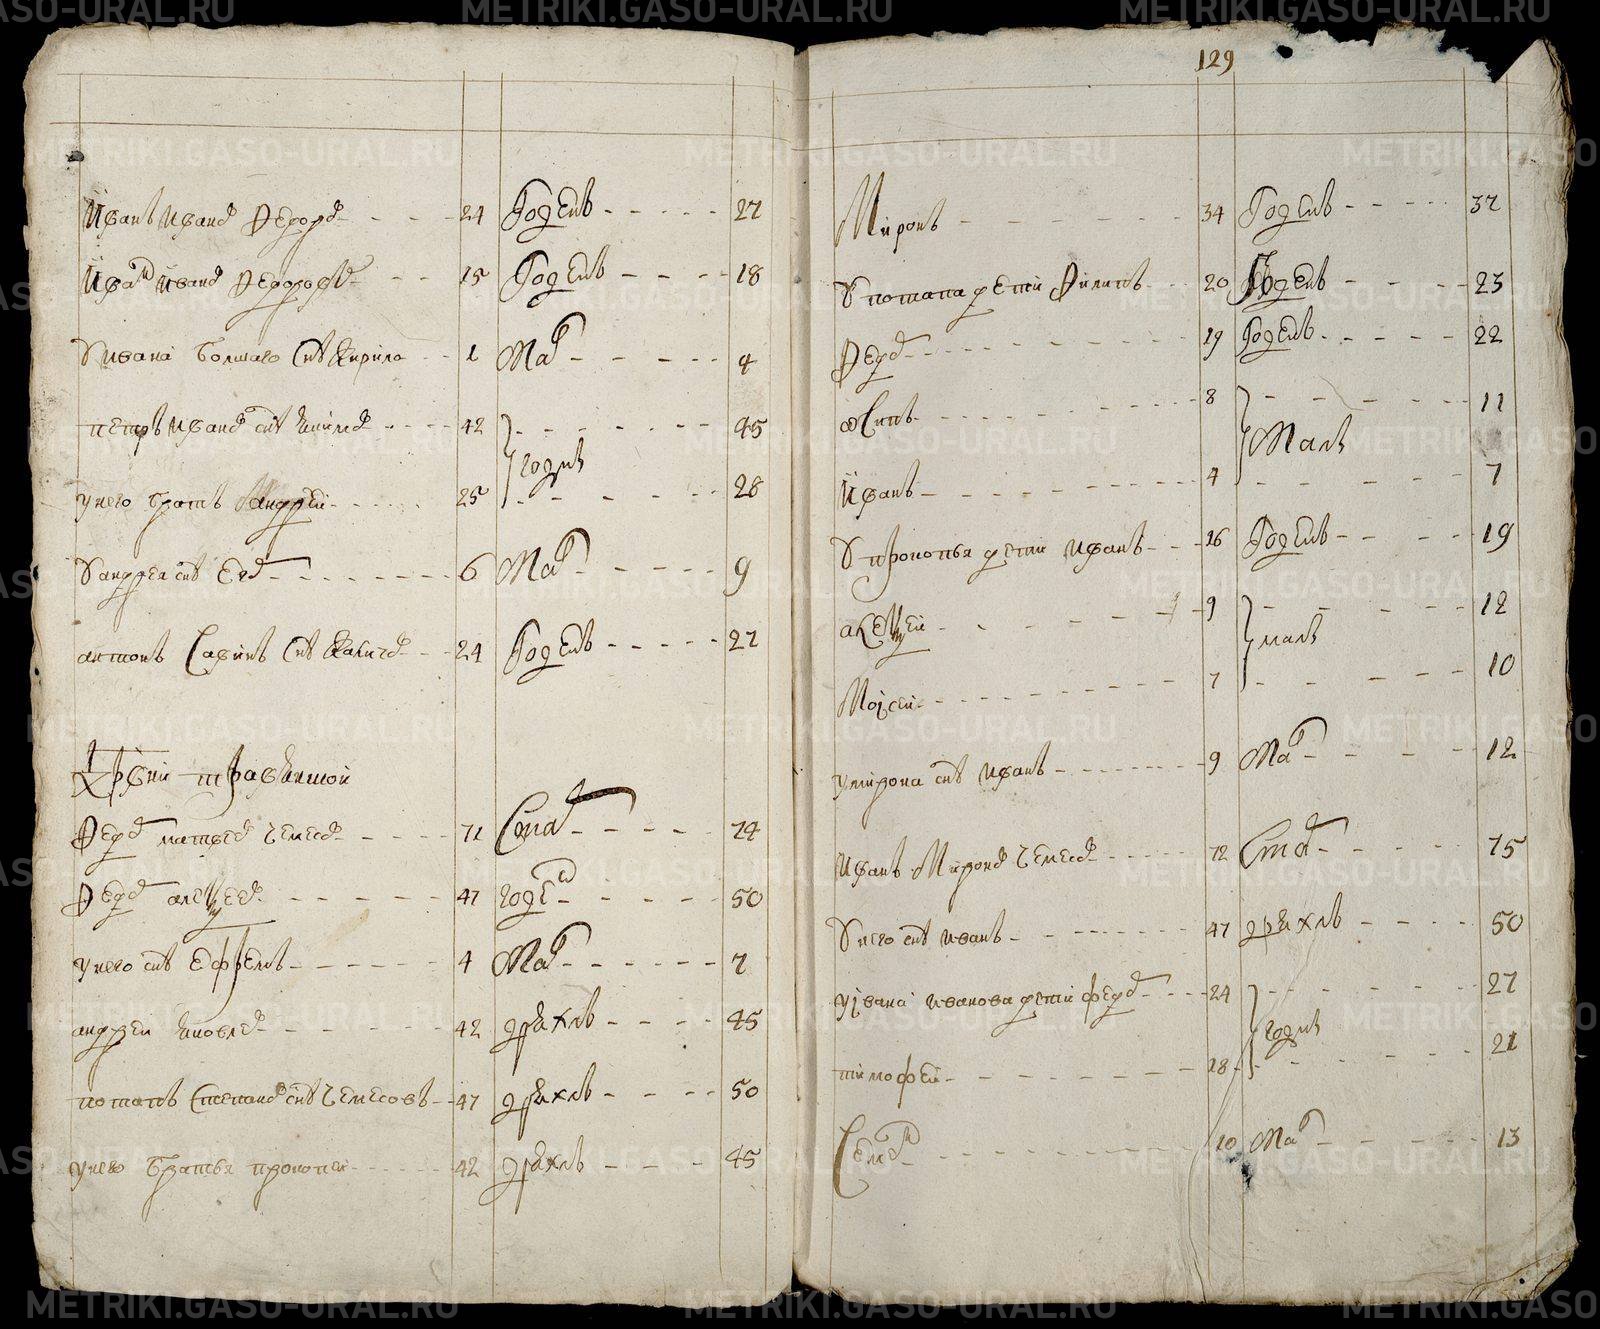 129
Иванъ Иванов Федоров 24 Годенъ 27
Иван Иванов Федоров 15 Годенъ 18
У Ивана болшаго снъ Кирила 1 Мал 4
петръ Иванов снъ 42 45
годны
у него братъ андреи 25 28
У андрея снъ Егор 6 Мал 9
антонъ Савинъ снъ 24 Годенъ 27
Федор матвеев 71 Стар 74
Федор алексеев 47 годен 50
у него снъ Ефремъ 4 Мал 7
андреи яковлев 42 дряхлъ 45
потапъ Степанов снъ 47 дряхлъ 50
у него братья прокопеи 42 дряхлъ 45
Миронъ 34 Годенъ 37
У потапа дети Филипъ 20 Годенъ 23
Федор 19 Годенъ 22
осипъ 8 11
Малы
Иванъ 4 7
У прокопья дети Иванъ 16 Годенъ 19
алексеи 9 12
малы
Моисеи 7 10
у мирона снъ Иванъ 9 Мал 12
Иванъ Миронов 72 Стар 75
У него снъ Иванъ 47 дряхлъ 50
у ивана Иванова дети федор 24 27
годны
тимофеи 18 21
Семен 10 Мал 13
METRIKI.GASO-URAL.RU